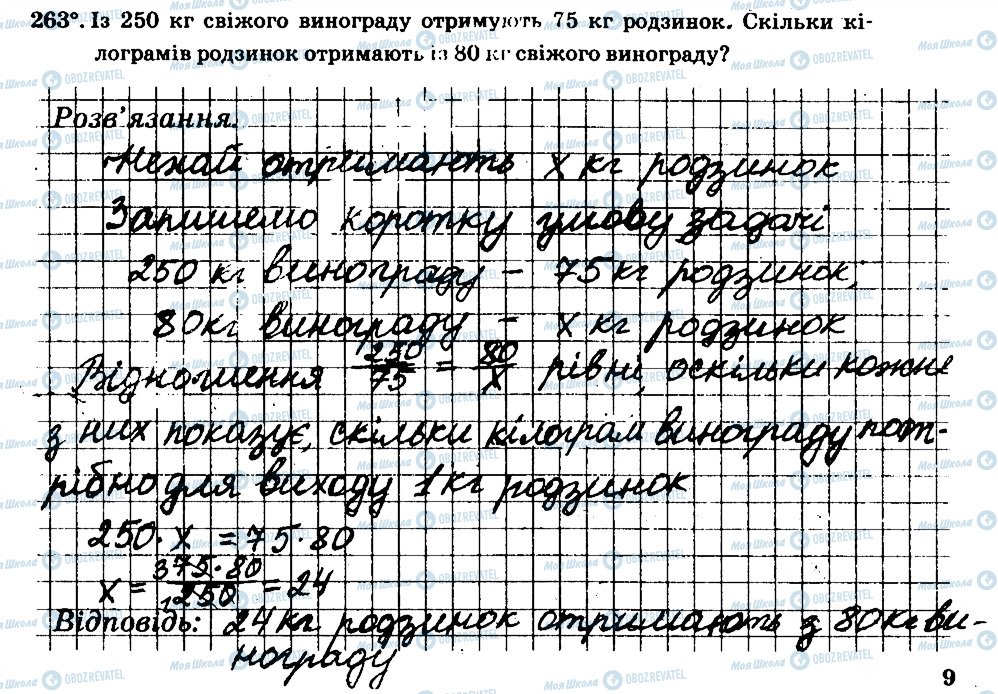 263°. Із 250 кг свіжого винограду отримують 75 кг родзинок. Скільки кі-
лограмів родзинок отримають із 80 кг свіжого винограду?
Розв'язання.
Нехай отримають x кг родзинок
Запишемо коротку умову задачі
250 кг винограду – 75 кг родзинок;
80 кг винограду – x кг родзинок
Відношення 250/75 = 80/x рівні, оскільки кожне
з них показує, скільки кілограм винограду пот-
рібно для виходу 1 кг родзинок
250 · x = 75 · 80
x = 375 · 80 / 1250 = 24
Відповідь: 24 кг родзинок отримають з 80 кг ви-
нограду
9